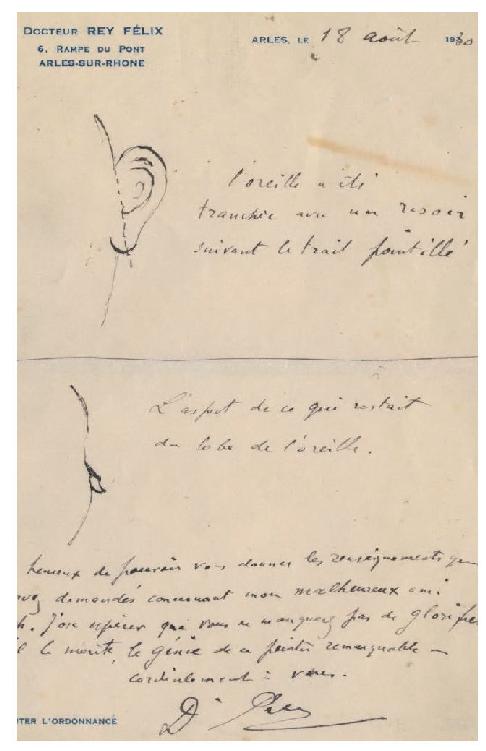 DOCTEUR REY FÉLIX
6, RAMPE DU PONT
ARLES-SUR-RHONE
ARLES, LE 18 août 1930
l'oreille a été
tranchée avec un rasoir
suivant le trait pointillé
L'aspect de ce qui restait
du lobe de l'oreille.
heureux de pouvoir vous donner les renseignements que
avez demandés concernant mon malheureux ami
h. J'ose espérer que vous ne manquerez pas de glorifier
il le mérite, le génie de ce peintre remarquable —
cordialement à vous.
Dr Rey
TER L'ORDONNANCE